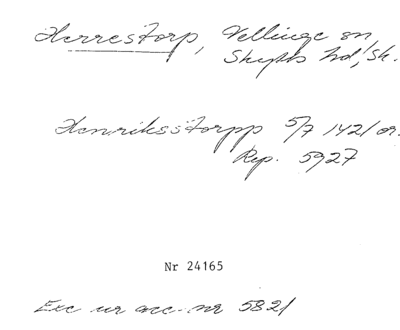 Herrestorp, Vellinge sn,
Skytts hd, Sk.
Henriksstorpp 5/7 1421 or.
Rep. 5927
Nr 24165
Exc ur acc. nr 5821